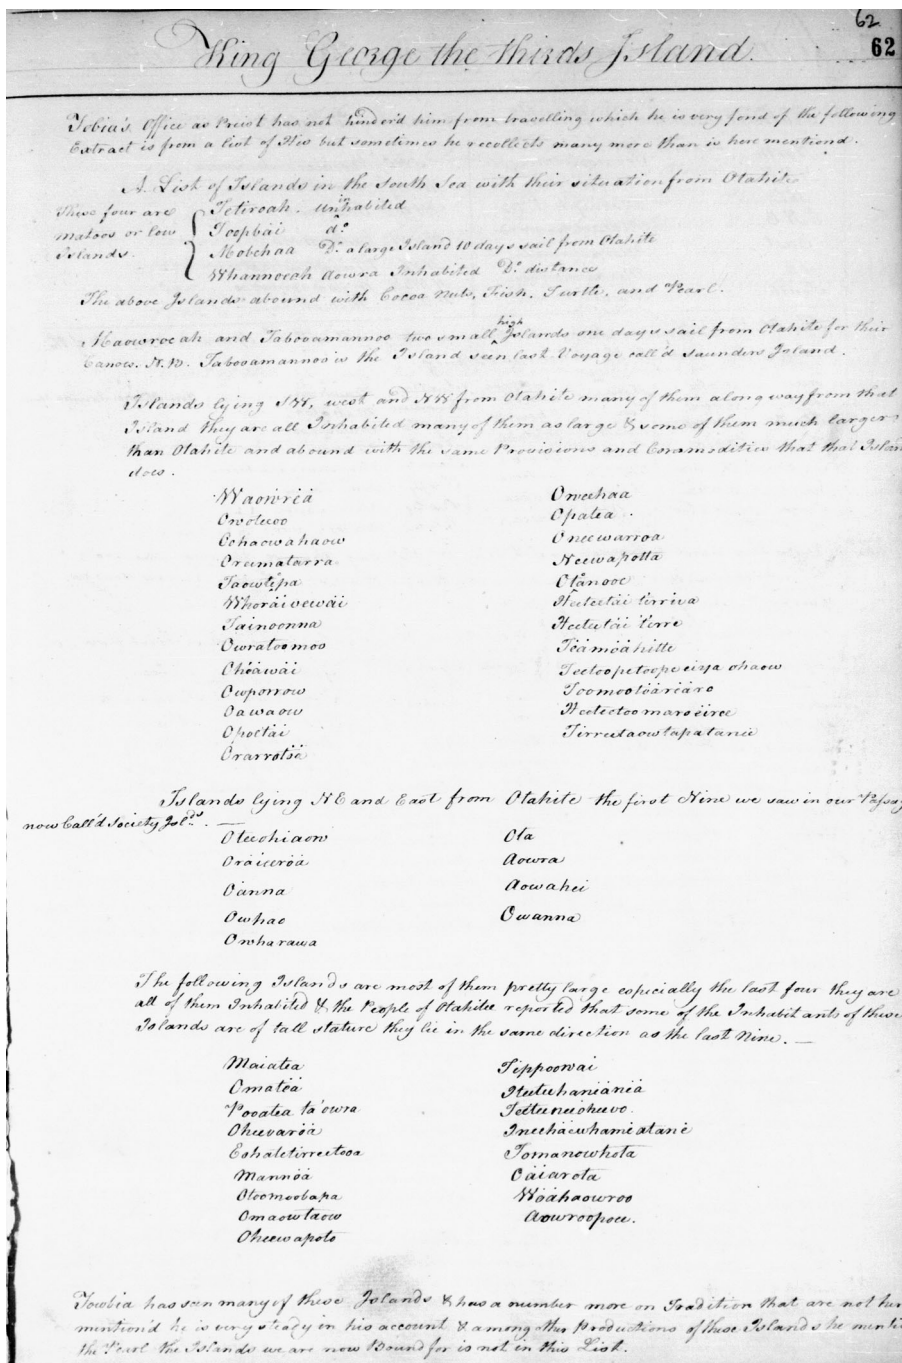 62
62
King George the thirds Island.
Tobia's Office as Preist has not hinder'd him from travelling which he is very fond of the following
Extract is from a list of His but sometimes he recollects many more than is here mentiond.
A List of Islands in the South Sea with their siteration from Otahite
These four are
matoos or low
Islands.
Tetiroah. uninhabited
Toopbäi do
Mobchaa Do. a large Island 10 days sail from Otahite
Whannorch Aowra Inhabited Do. distance
The above Islands abound with Cocoa Nuts, Fish, Turtle, and Pearl.
Maowrocah and Tabooamannoo two small high Islands one days sail from Otahite for their
Canoes. N.B. Tabooamannoo is the Island seen last Voyage call'd Saunders Island.
Islands lying SW, west and NW from Otahite many of them along way from that
Island they are all Inhabited many of them as large & some of them much larger
than Otahite and abound with the same Provisions and Commodities that that Island
does.
Waowrëä Oweehaa
Owoteoo Opatea.
Oohaowahaow Oneewarroa
Oreematarra Neewapotta
Taowtepa Otånooe
Whoräivewäi Heeteetäi terreva
Tainoonna Heeteetäi terre
Owratoomoo Teämöähitte
Chöäwäi Teetoopetoope eiya ohaow
Owporrow Toomootöäreäro
Oawaow Heeteetoomaroëiree
Opoetäi Tirreetaowtapatanee
Orarrotöä
Islands lying NE and East from Otahite the first Nine we saw in our Passag
now Call'd Society Islds. —
Oteeohiaow Ota
Oräiwröä Aowra
Oanna Aowahei
Owhao Owanna
Owharawa
The following Islands are most of them pretty large especially the last four they are
all of them Inhabited & the People of Otahitee reported that some of the Inhabitants of these
Islands are of tall stature they lie in the same direction as the last Nine. —
Maiatea Tippoowai
Omatëä Iteetuhaniäniä
Pooatea ta'owra Tetteineohеevo.
Oheevaröä Ineehäewhameatane
Eohaletirreetooa Tomanowhota
Mannöä Oäiarota
Otoomoobapa Wöähaowroo
Omaowtaow Aowroopoee.
Oheewapoto
Towbia has seen many of these Islands & has a number more on Tradition that are not her
mention'd he is very steady in his account & among other Productions of these Islands he menti
the Pearl the Islands we are now Bound for is not in this List.